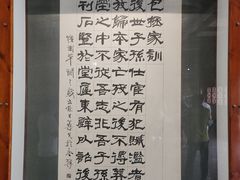 包拯家訓
後世子孫仕宦有犯贓濫者
放歸本家亡歿之後不得葬
塋之中不從吾志非吾子孫
刊石豎於堂屋東壁以詔後